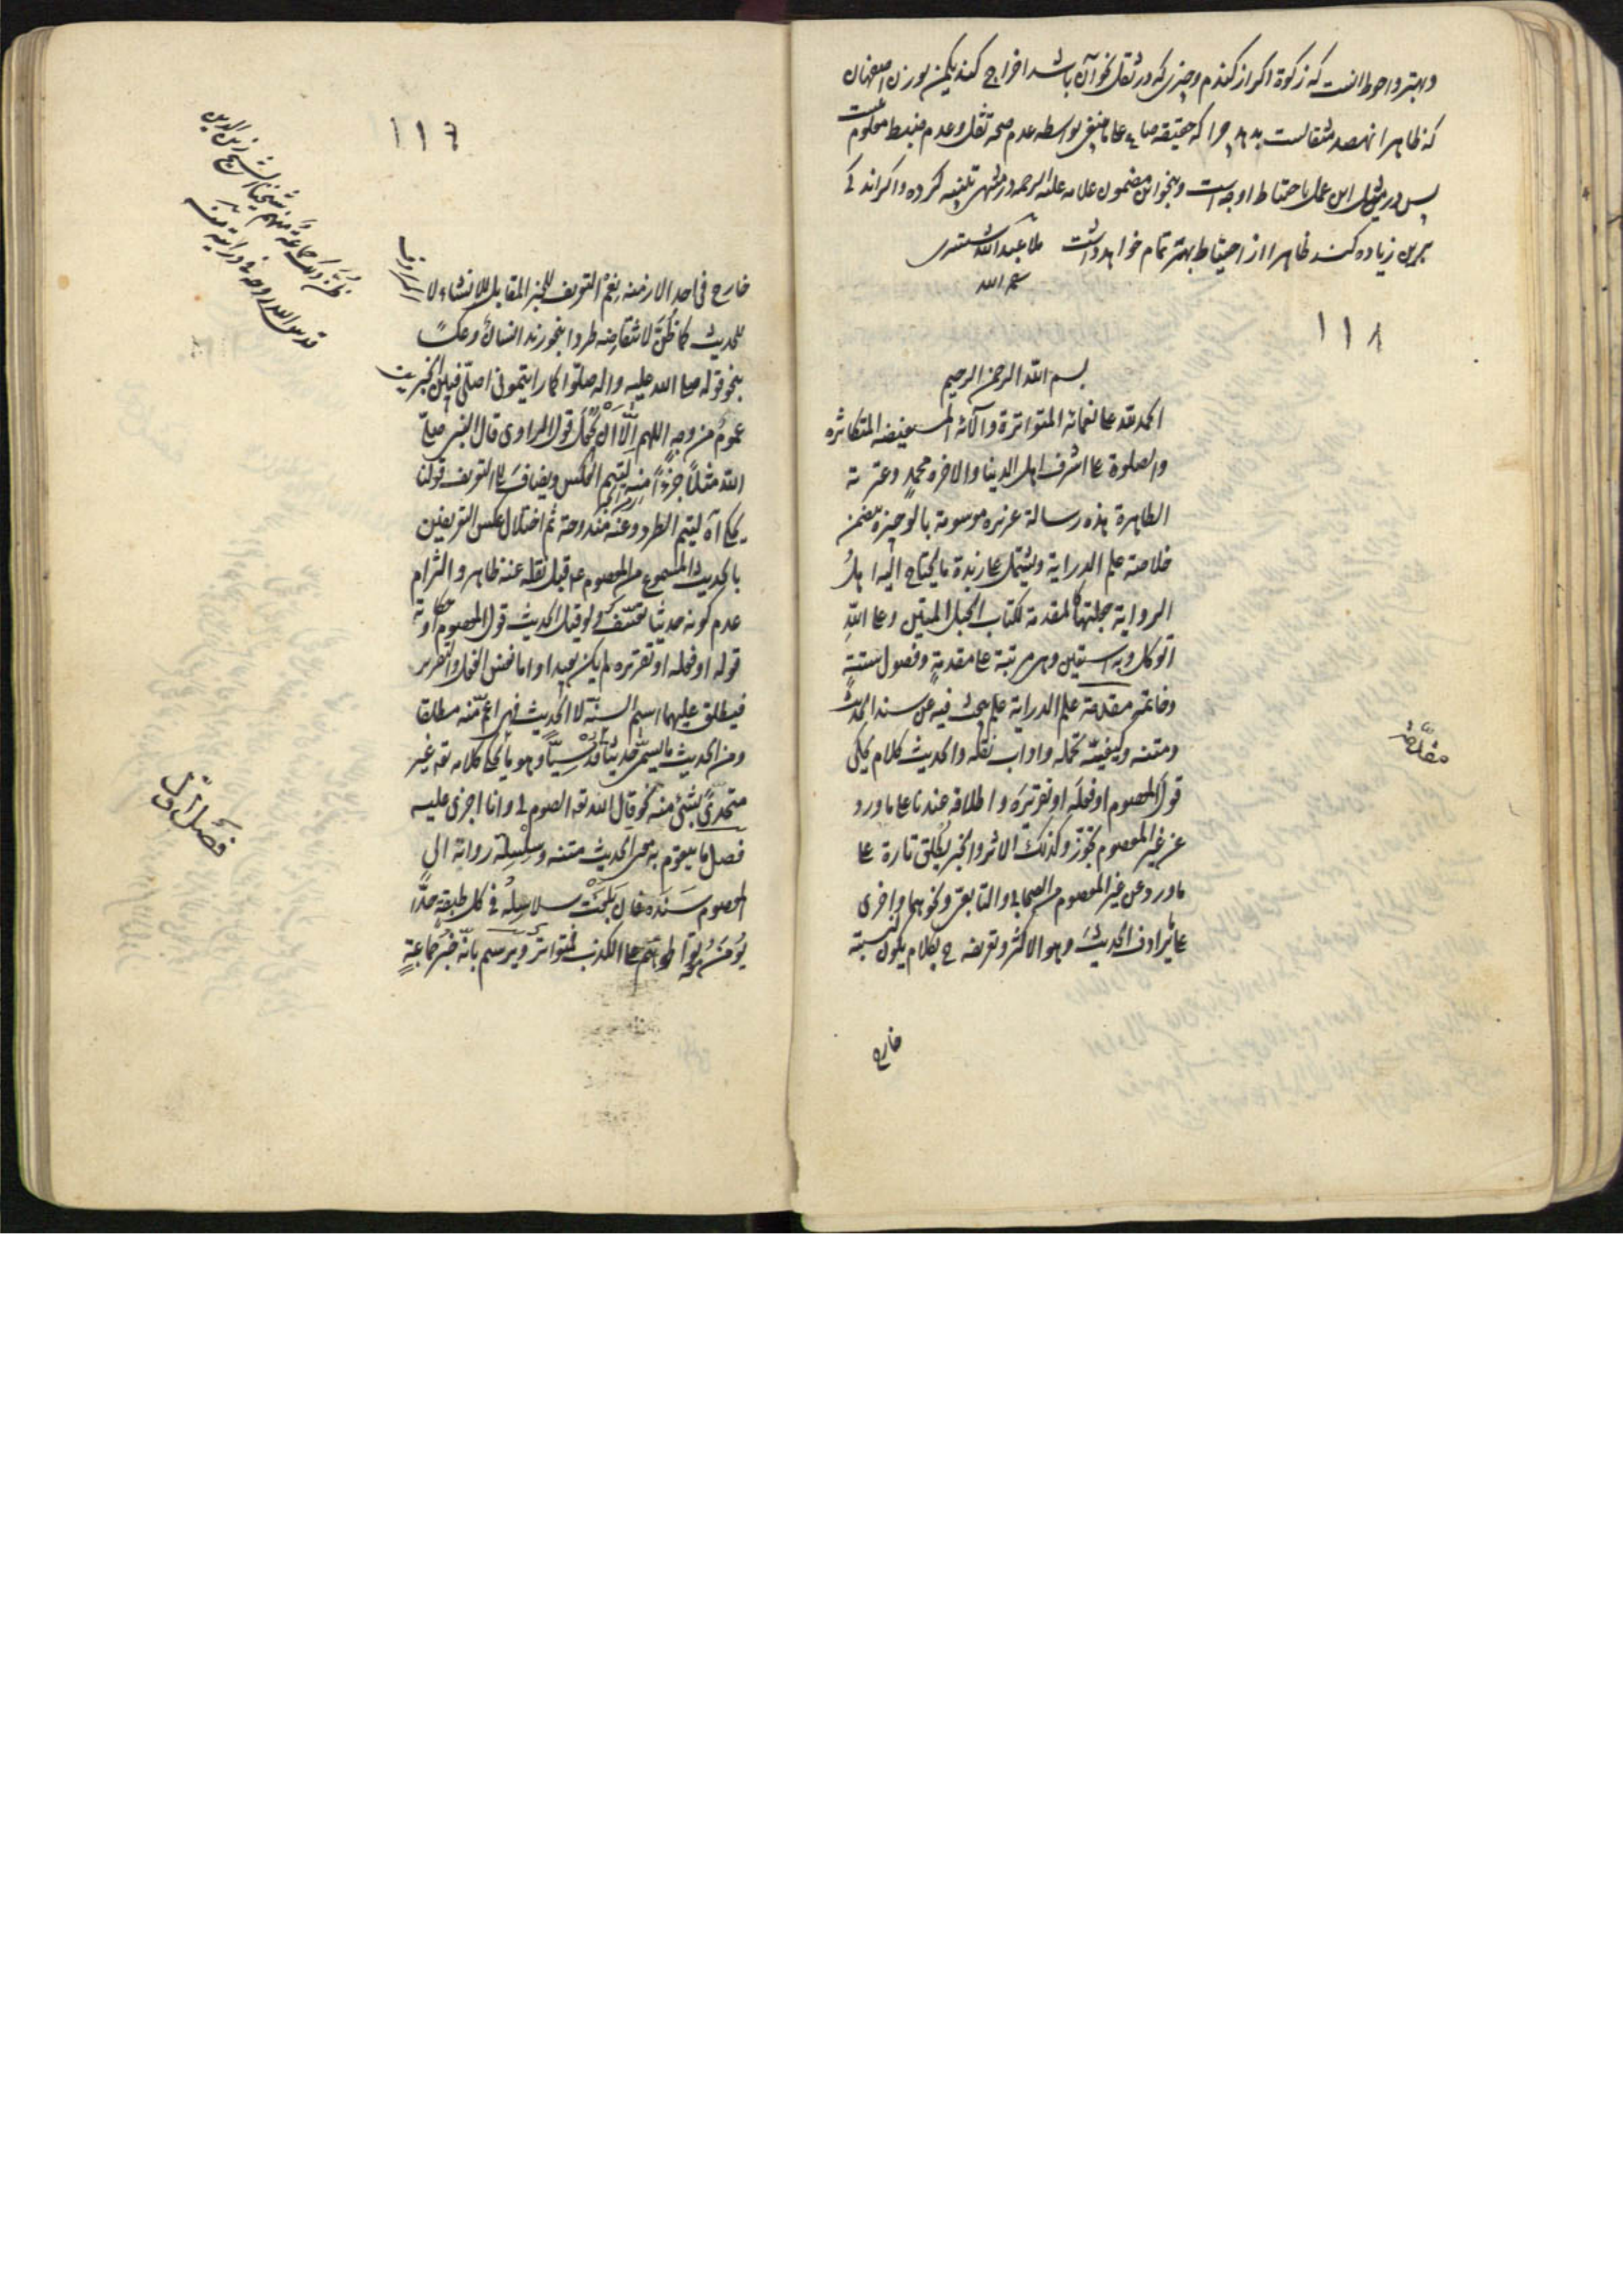 وبهتر و احوط انست که زکوة اکر از کندم و چیزی که در ثقل نحو آن باشد اخراج کند یکمن بوزن اصفهان
که ظاهرا نهصد مثقالست بدهد چرا که حقیقه صاع علی بواسطه عدم صحه نقل و عدم ضبط معلوم نیست
پس در مثل این عمل باحتیاط اوجه است و بنحو این مضمون علامه علیه الرحمه در منتهی کرده و اکر اندکی
برین زیاده کند ظاهرا از احتیاط بهتر تمام خواهد داشت ملا عبد الله شستری
رحمه الله
١١٨
بسم الله الرحمن الرحیم
الحمد لله علی نعمائه المتواترة و آلائه المستفیضه المتکاثره
والصلوة علی اشرف اهل الدنیا والاخره محمد وعترته
الطاهرة هذه رسالة عزیزه موسومة بالوجیزه تتضمن
خلاصة علم الدرایة وتشتمل علی زبدة ما یحتاج الیه اهل
الروایة جعلتها کالمقدمة لکتاب الحبل المتین وعلی الله
اتوکل وبه استعین وهی مرتبة علی مقدمة وفصول ستة
وخاتمة مقدمة علم الدرایة علم یبحث فیه عن سند الحدیث
ومتنه وکیفیة تحمله واداب نقله والحدیث کلام یحکی
قول المعصوم او فعله او تقریره واطلاقه عندنا علی ما ورد
عن غیر المعصوم تجوز وکذلک الاثر والخبر یطلق تارة علی
ما ورد عن غیر المعصوم من الصحابی والتابعی ونحوهما واخری
علی ما یرادف الحدیث وهو الاکثر وتعریفه ح بکلام یکون لنسبته
خارج
مقدمة
١١٦
خارج فی احد الازمنة یعم التعریف للخبر المقابل للانشاء لا
للحدیث کما ظن لانتقاضه طردا بنحو زید انسان وعکسا
بنحو قوله صلی الله علیه واله صلوا کما رایتمونی اصلی فبین الخبرین
عموم من وجه اللهم الا ان یجعل قول الراوی قال النبی صلی
الله مثلا جزءا منه لیتم العکس ویضاف الی التعریف قولنا
یحکی آه لیتم الطرد وعنه مندوحة ثم اختلال عکس التعریفین
بالحدیث المسموع من المعصوم ع قبل نقله عنه ظاهر والتزام
عدم کونه حدیثا تعسف ولو قیل الحدیث قول المعصوم او حکایة
قوله او فعله او تقریره لم یکن بعیدا واما نفس الفعل والتقریر
فیطلق علیهما اسم السنة لا الحدیث فهی اعم منه مطلقا
ومن الحدیث ما یسمی حدیثا قدسیا وهو ما یحکی کلامه تعه غیر
متحدی بشیء منه نحو قال الله تعه الصوم لی وانا اجزی علیه
فصل ما یتقوم به معنی الحدیث متنه وسلسلة رواته الی
المعصوم سنده فان بلغت سلاسله فی کل طبقة حدا
یؤمن معه تواطؤهم علی الکذب فمتواتر ویرسم بانه خبر جماعة
ظن ذلک جماعة منهم شیخنا الشیخ زین الدین
قدس الله روحه فی درایته منه
فصل اول